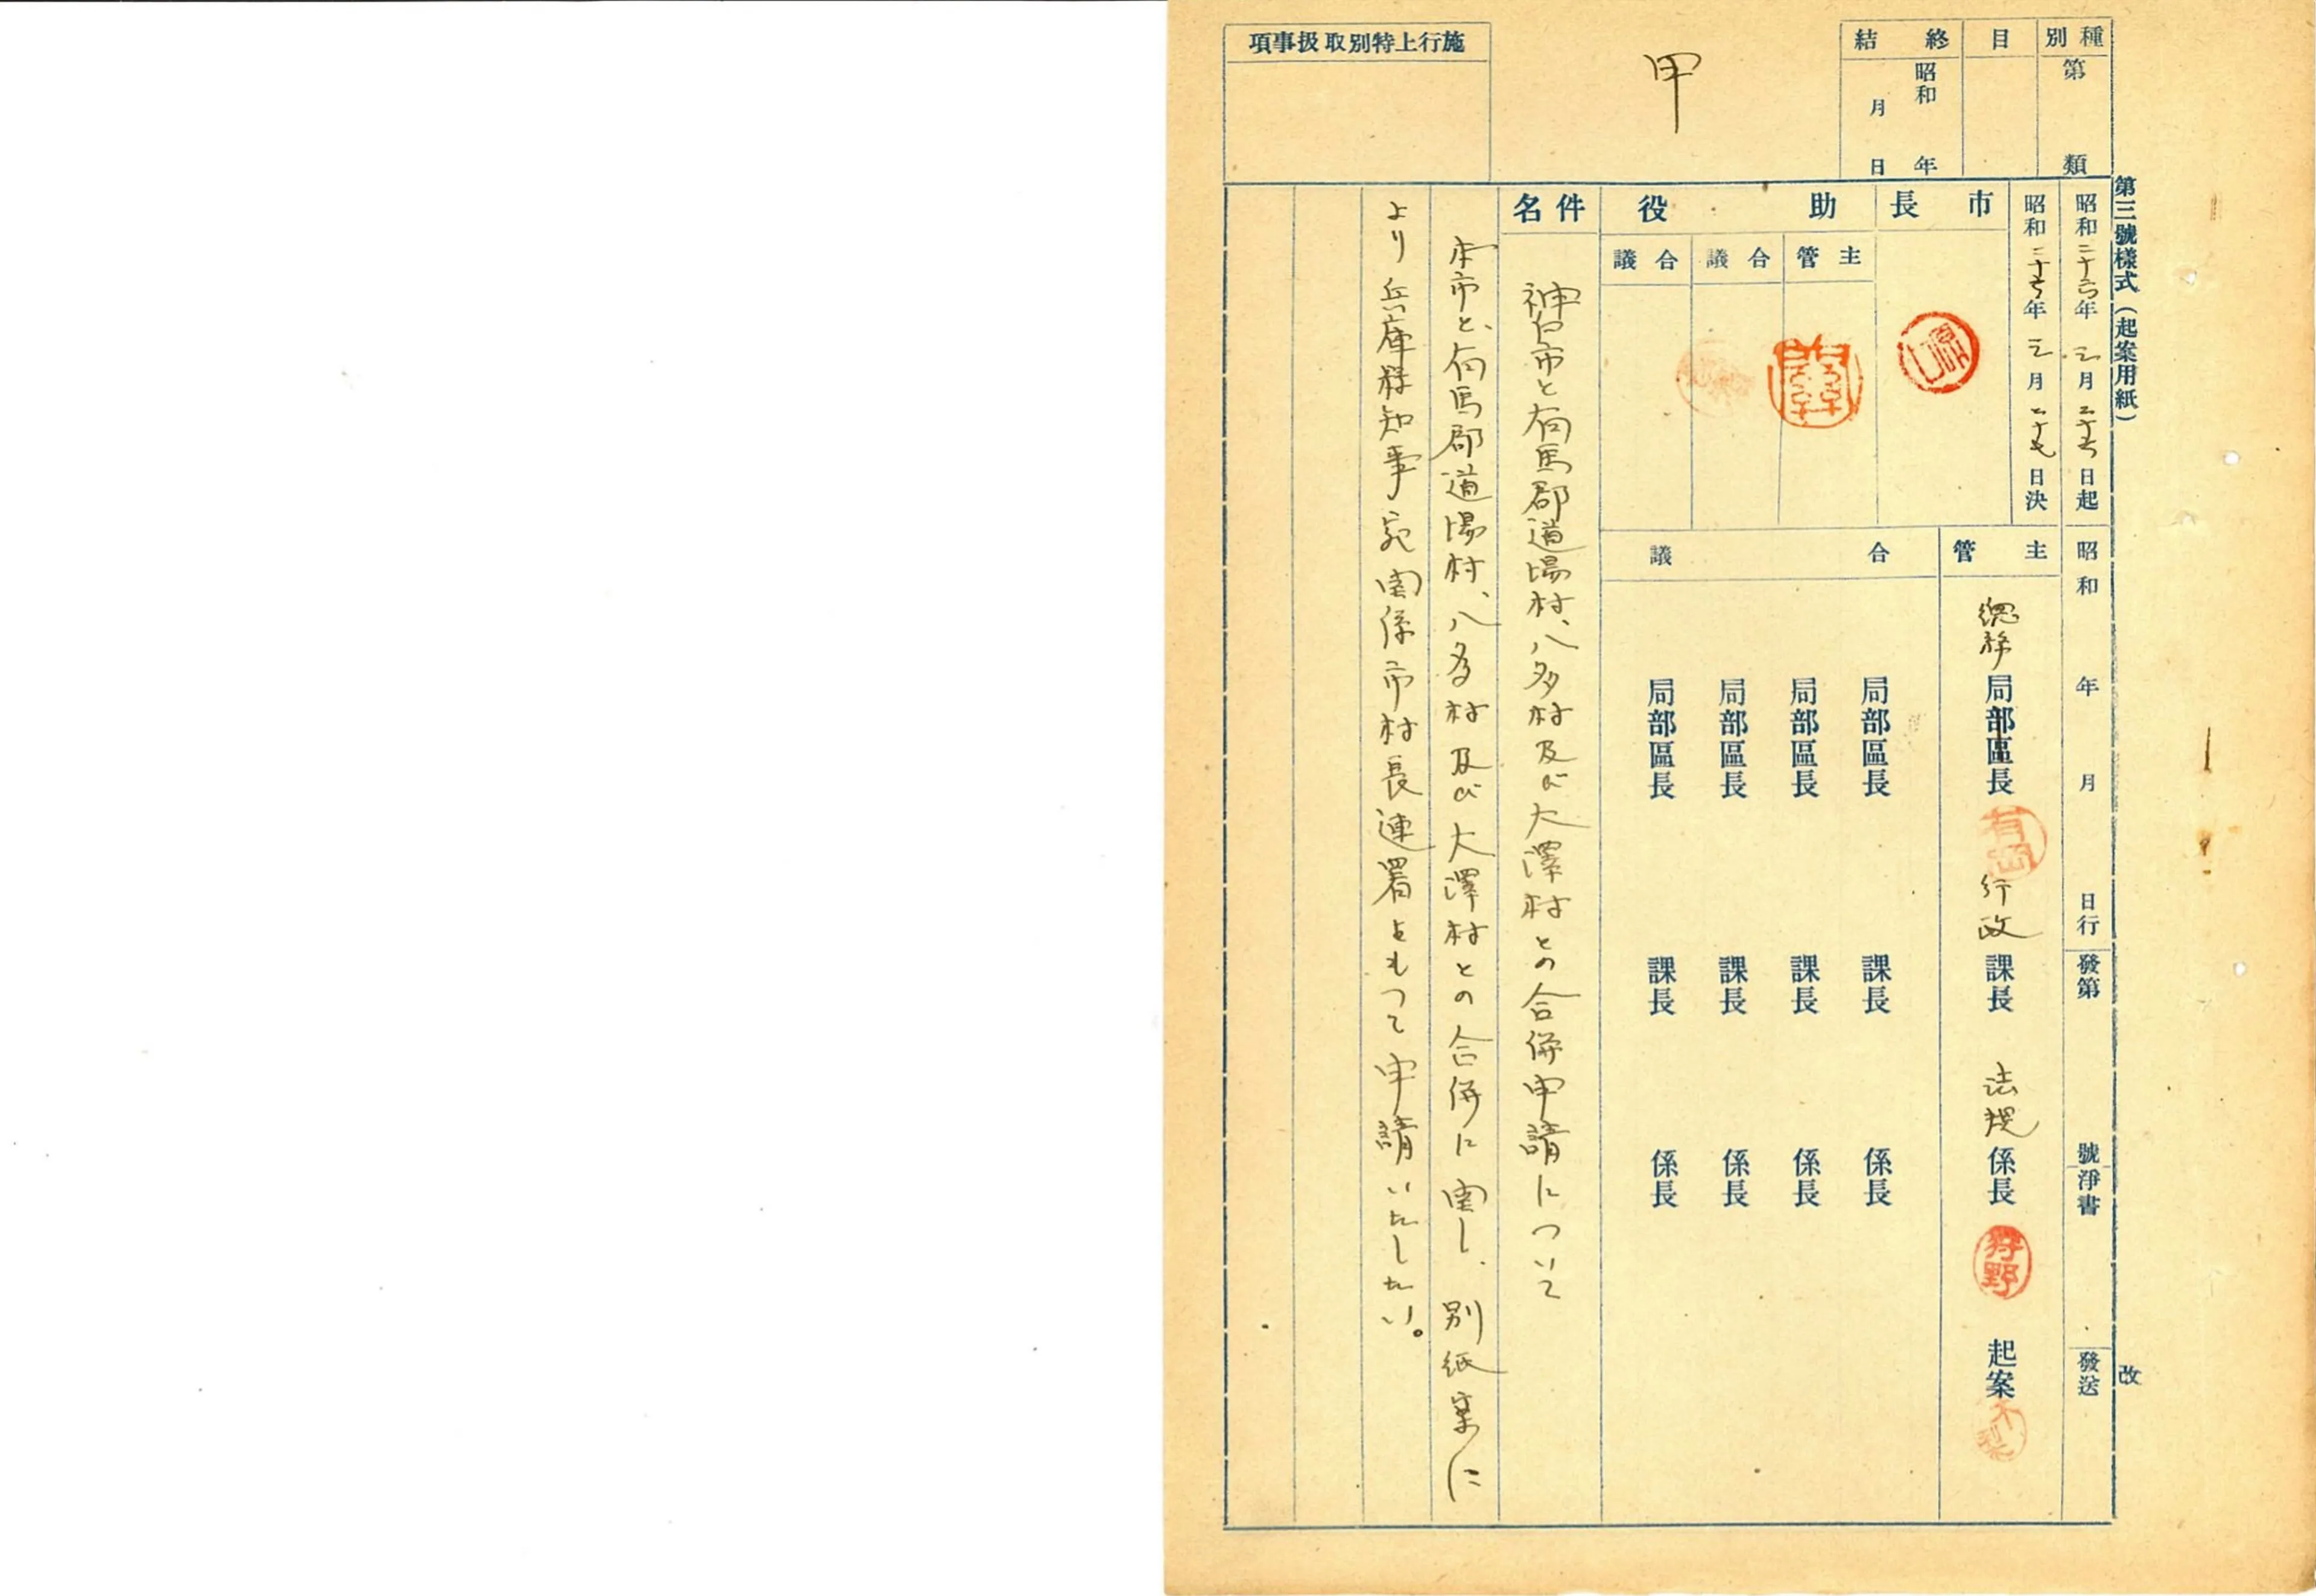 第三號樣式（起案用紙）
改
種別
第　類
目
終結
昭和　年
月　日
甲
施行上特別取扱事項
昭和二十六年三月二十六日起
昭和二十六年三月二十七日決
市長
原口
助役
主管
合議
合議
昭和　年　月　日行
發第　號
淨書
發送
主管
總務局部區長
有岡
行政課長
法規係長
狩野
起案
合議
局部區長　課長　係長
局部區長　課長　係長
局部區長　課長　係長
局部區長　課長　係長
件名
神戸市と有馬郡道場村、八多村及び大澤村との合併申請について
本市と、有馬郡道場村、八多村及び大澤村との合併に関し、別紙案に
より兵庫県知事宛関係市村長連署をもつて申請いたしたい。